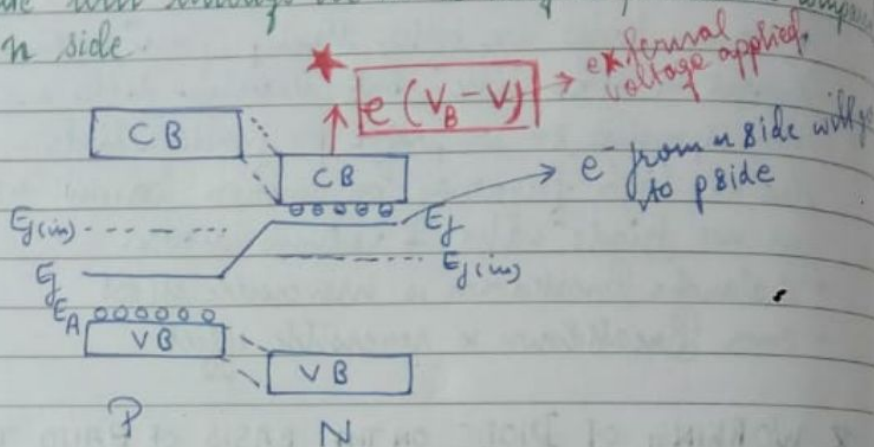 n side.
e(V_B - V) → external
voltage applied.
CB
CB
e⁻ from n side will
to pside
E_f(in)
E_f
E_f(in)
E_f
E_A
VB
VB
P
N